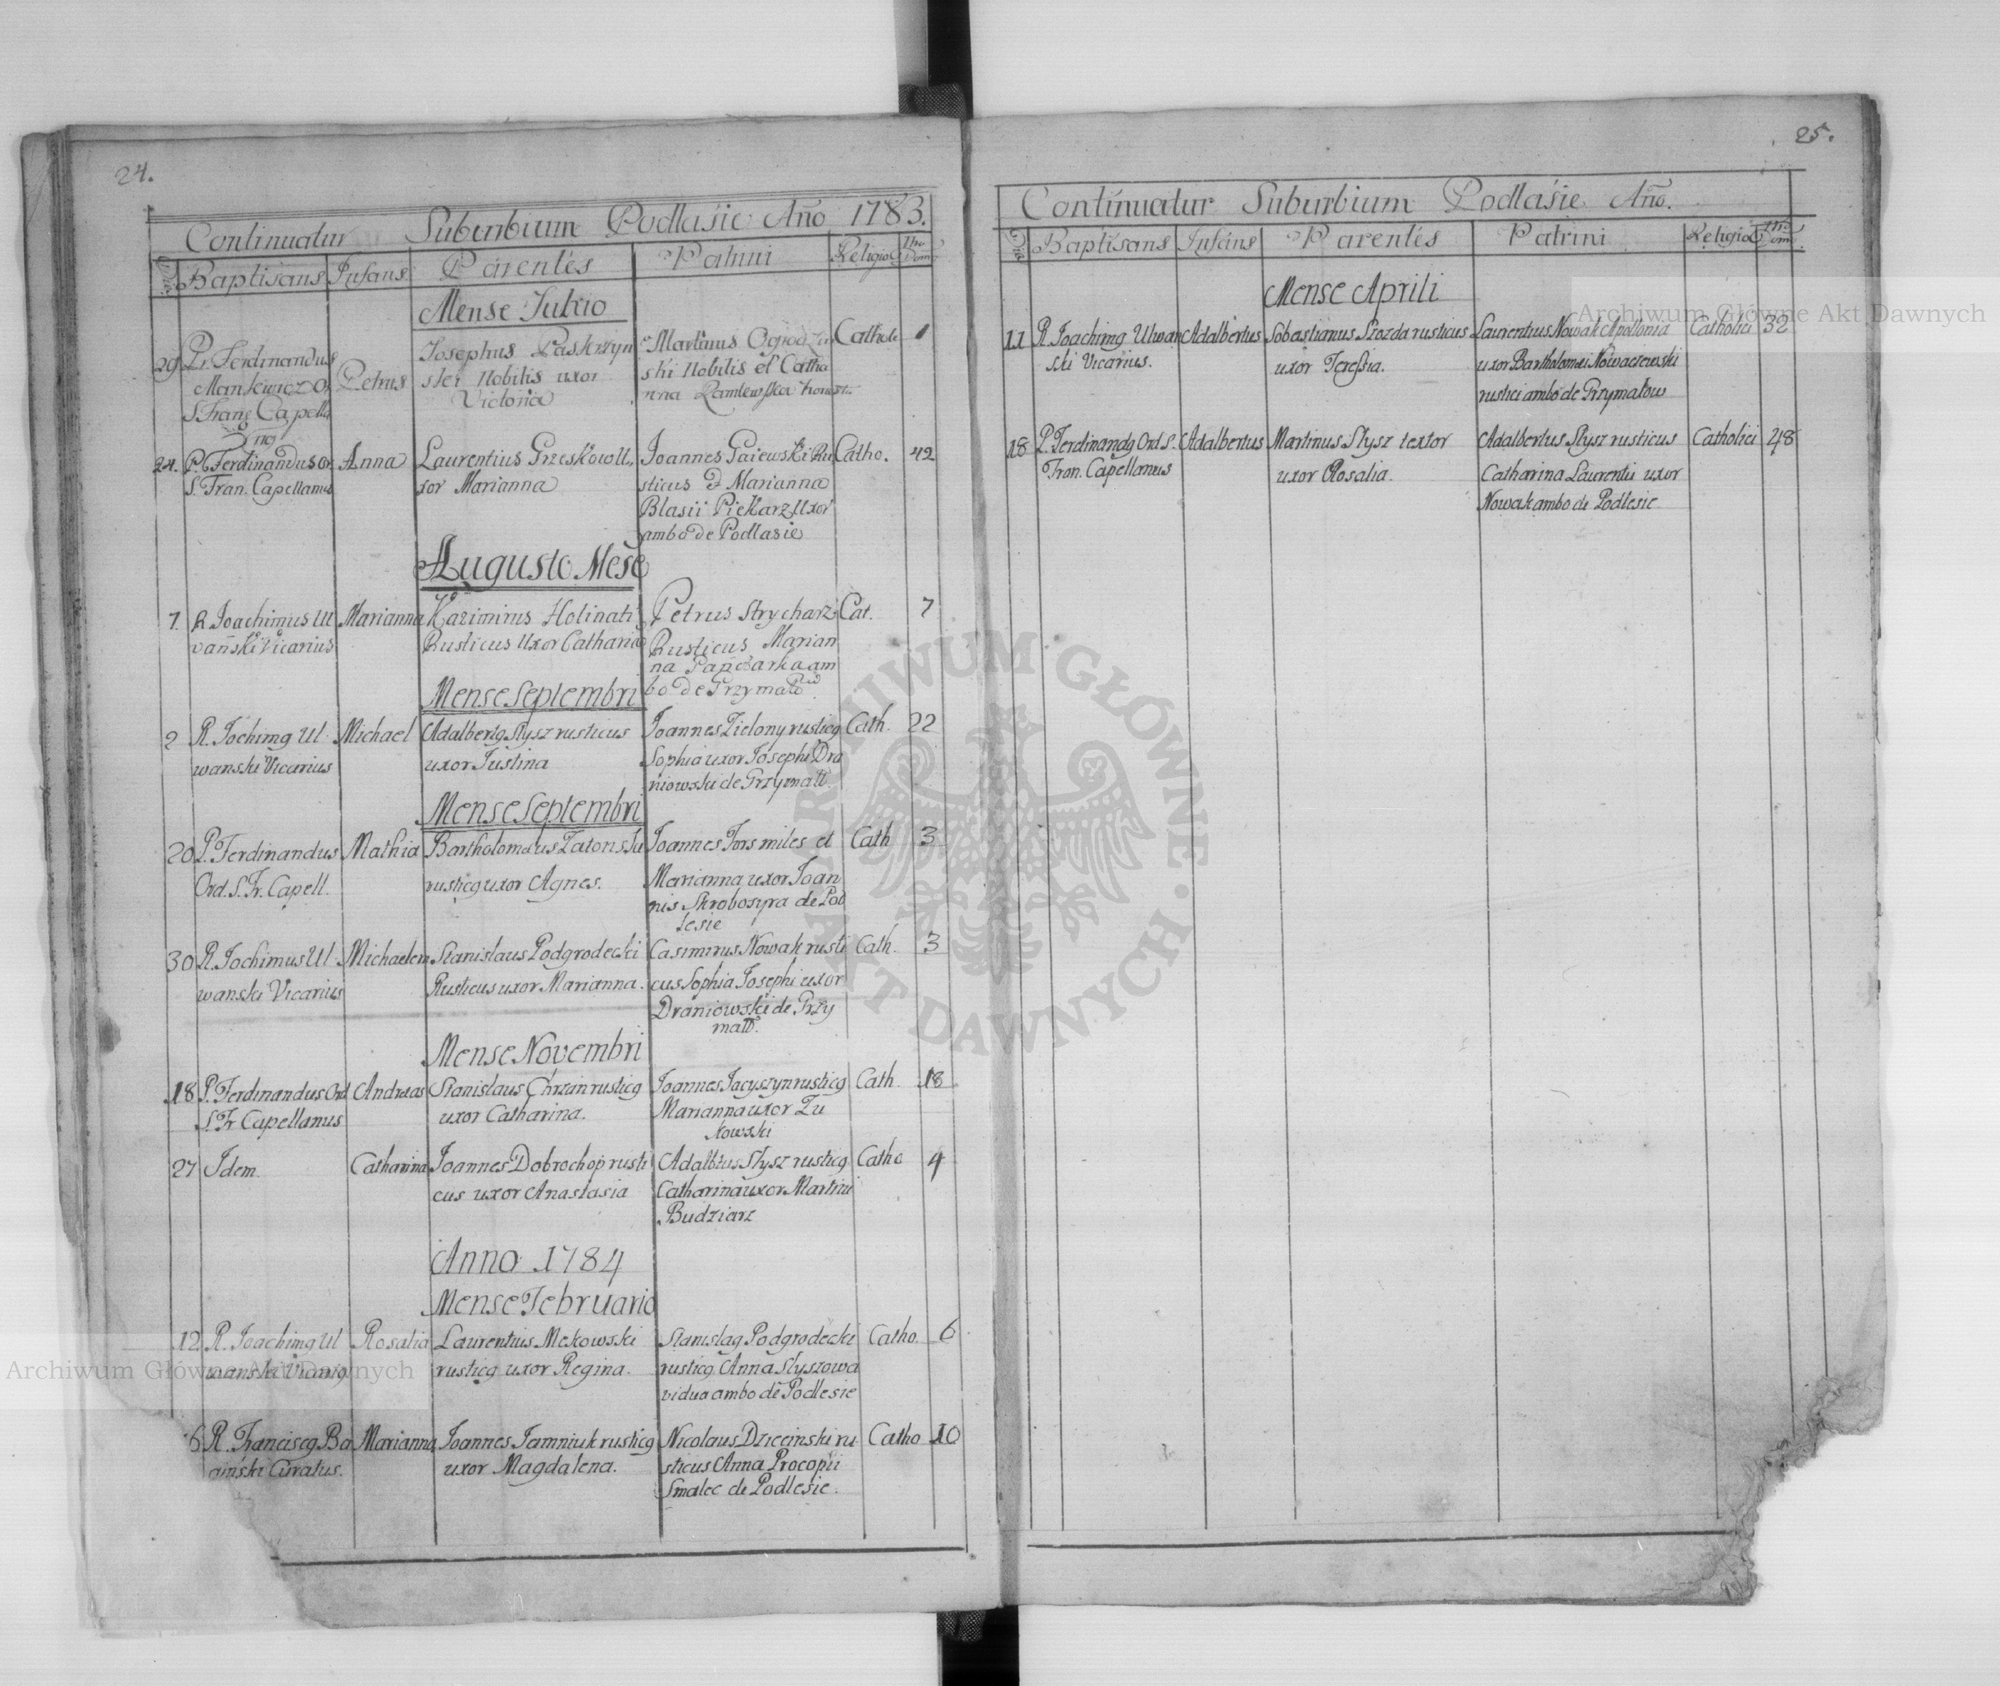 24.
Continuatur Suburbium Podlasie Año 1783.
Baptisans Infans Parentes Patrini Religio No Dom
Mense Julio
29 P. Ferdinandus
Mankiewicz Or
S. Franc Capella
nus
Petrus
Josephus Paskrzyn
ski Nobilis uxor
Victoria
Martinus Ogrodzin
ski Nobilis et Catha
rina
Cathole
1
24. P. Ferdinandus Or
S. Fran. Capellanus
Anna
Laurentius Grzeskow
xor Marianna
Joannes Gaiewski Ru
sticus & Marianna
Blasii Piekarz Uxor
ambo de Podlasie
Catho.
42
Augusto Mese
7. R. Joachimus Ul
vański Vicarius
Marianna
Kazimirus Holinaty
Rusticus Uxor Catharina
Petrus Strycharz
Rusticus Marian
na Pańczarka am
bo de Grzymało
Cat.
7
Mense Septembri
2 R. Jochimg Ul
wanski Vicarius
Michael
Adalbertg Słysz rusticus
uxor Justina
Joannes Zielony rusticg
Sophia uxor Josephi Dra
niowski de Grzymałł.
Cath.
22
Mense Septembri
20 P. Ferdinandus
Ord. S. Fr. Capell.
Mathia
Bartholomaus Zatonski
rusticg uxor Agnes.
Joannes Fors miles et
Marianna uxor Joan
nis Skrobosyra de Pod
lesie
Cath
3
30 R. Jochimus Ul
wanski Vicarius
Michaelem
Stanislaus Podgrodecki
Rusticus uxor Marianna.
Casimirus Nowak rusti
cus Sophia Josephi uxor
Draniowski de Grzy
małł.
Cath.
3
Mense Novembri
18 P. Ferdinandus Ord
S. Fr Capellanus
Andreas
Stanislaus Chrzan rusticg
uxor Catharina.
Joannes Jacyszyn rusticg
Marianna uxor Zu
kowski
Cath.
18
27 Idem.
Catharina
Joannes Dobrochop rusti
cus uxor Anastasia
Adalbtus Słysz rusticg
Catharina uxor Martini
Budziarz
Catho
4
Anno 1784
Mense Februario
12 R. Joachimg Ul
wanski Vicarig
Rosalia
Laurentius Mekowski
rusticg uxor Regina.
Stanislag Podgrodecki
rusticg Anna Słyszowa
vidua ambo de Podlesie
Catho.
6
6 R. Franciscg Ba
ański Curatus.
Marianna
Joannes Jamniuk rusticg
uxor Magdalena.
Nicolaus Dziecinski ru
sticus Anna Procopii
Smalec de Podlesie.
Catho
10
25.
Continuatur Suburbium Podlasie Año.
Dies Baptisans Infans Parentes Patrini Religio No Dom
Mense Aprili
11 R. Joachimg Ulwan
ski Vicarius.
Adalbertus
Sobastianus Srozda rusticus
uxor Teressia.
Laurentius Nowak Apollonia
uxor Bartholomei Nowaczewski
rustici ambo de Grzymałow
Catholici
32
18 P. Ferdinandg Ord. S.
Fran. Capellanus
Adalbertus
Martinus Słysz textor
uxor Rosalia.
Adalbertus Słysz rusticus
Catharina Laurentii uxor
Nowak ambo de Podlesie
Catholici
48
Archiwum Główne Akt Dawnych
Archiwum Główne Akt Dawnych
ARCHIWUM GŁÓWNE AKT DAWNYCH